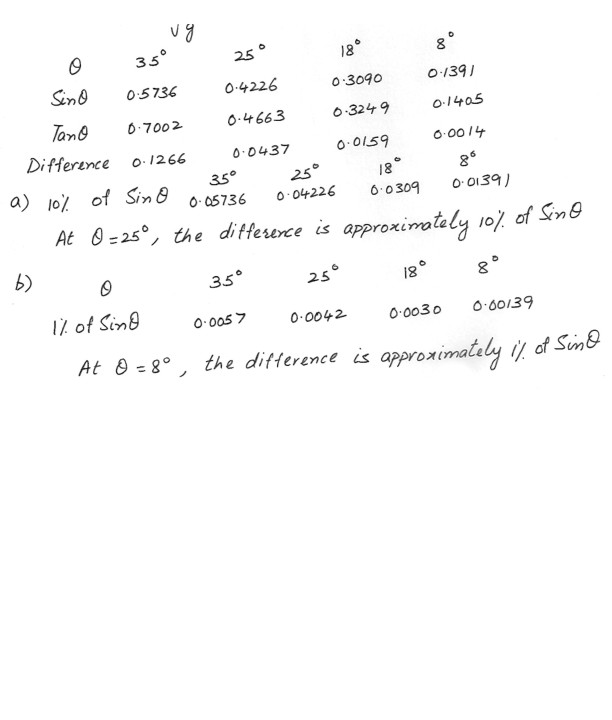 v g
θ 35° 25° 18° 8°
Sinθ 0.5736 0.4226 0.3090 0.1391
Tanθ 0.7002 0.4663 0.3249 0.1405
Difference 0.1266 0.0437 0.0159 0.0014
35° 25° 18° 8°
a) 10% of Sinθ 0.05736 0.04226 0.0309 0.01391
At θ = 25°, the difference is approximately 10% of Sinθ
b) θ 35° 25° 18° 8°
1% of Sinθ 0.0057 0.0042 0.0030 0.00139
At θ = 8°, the difference is approximately 1% of Sinθ